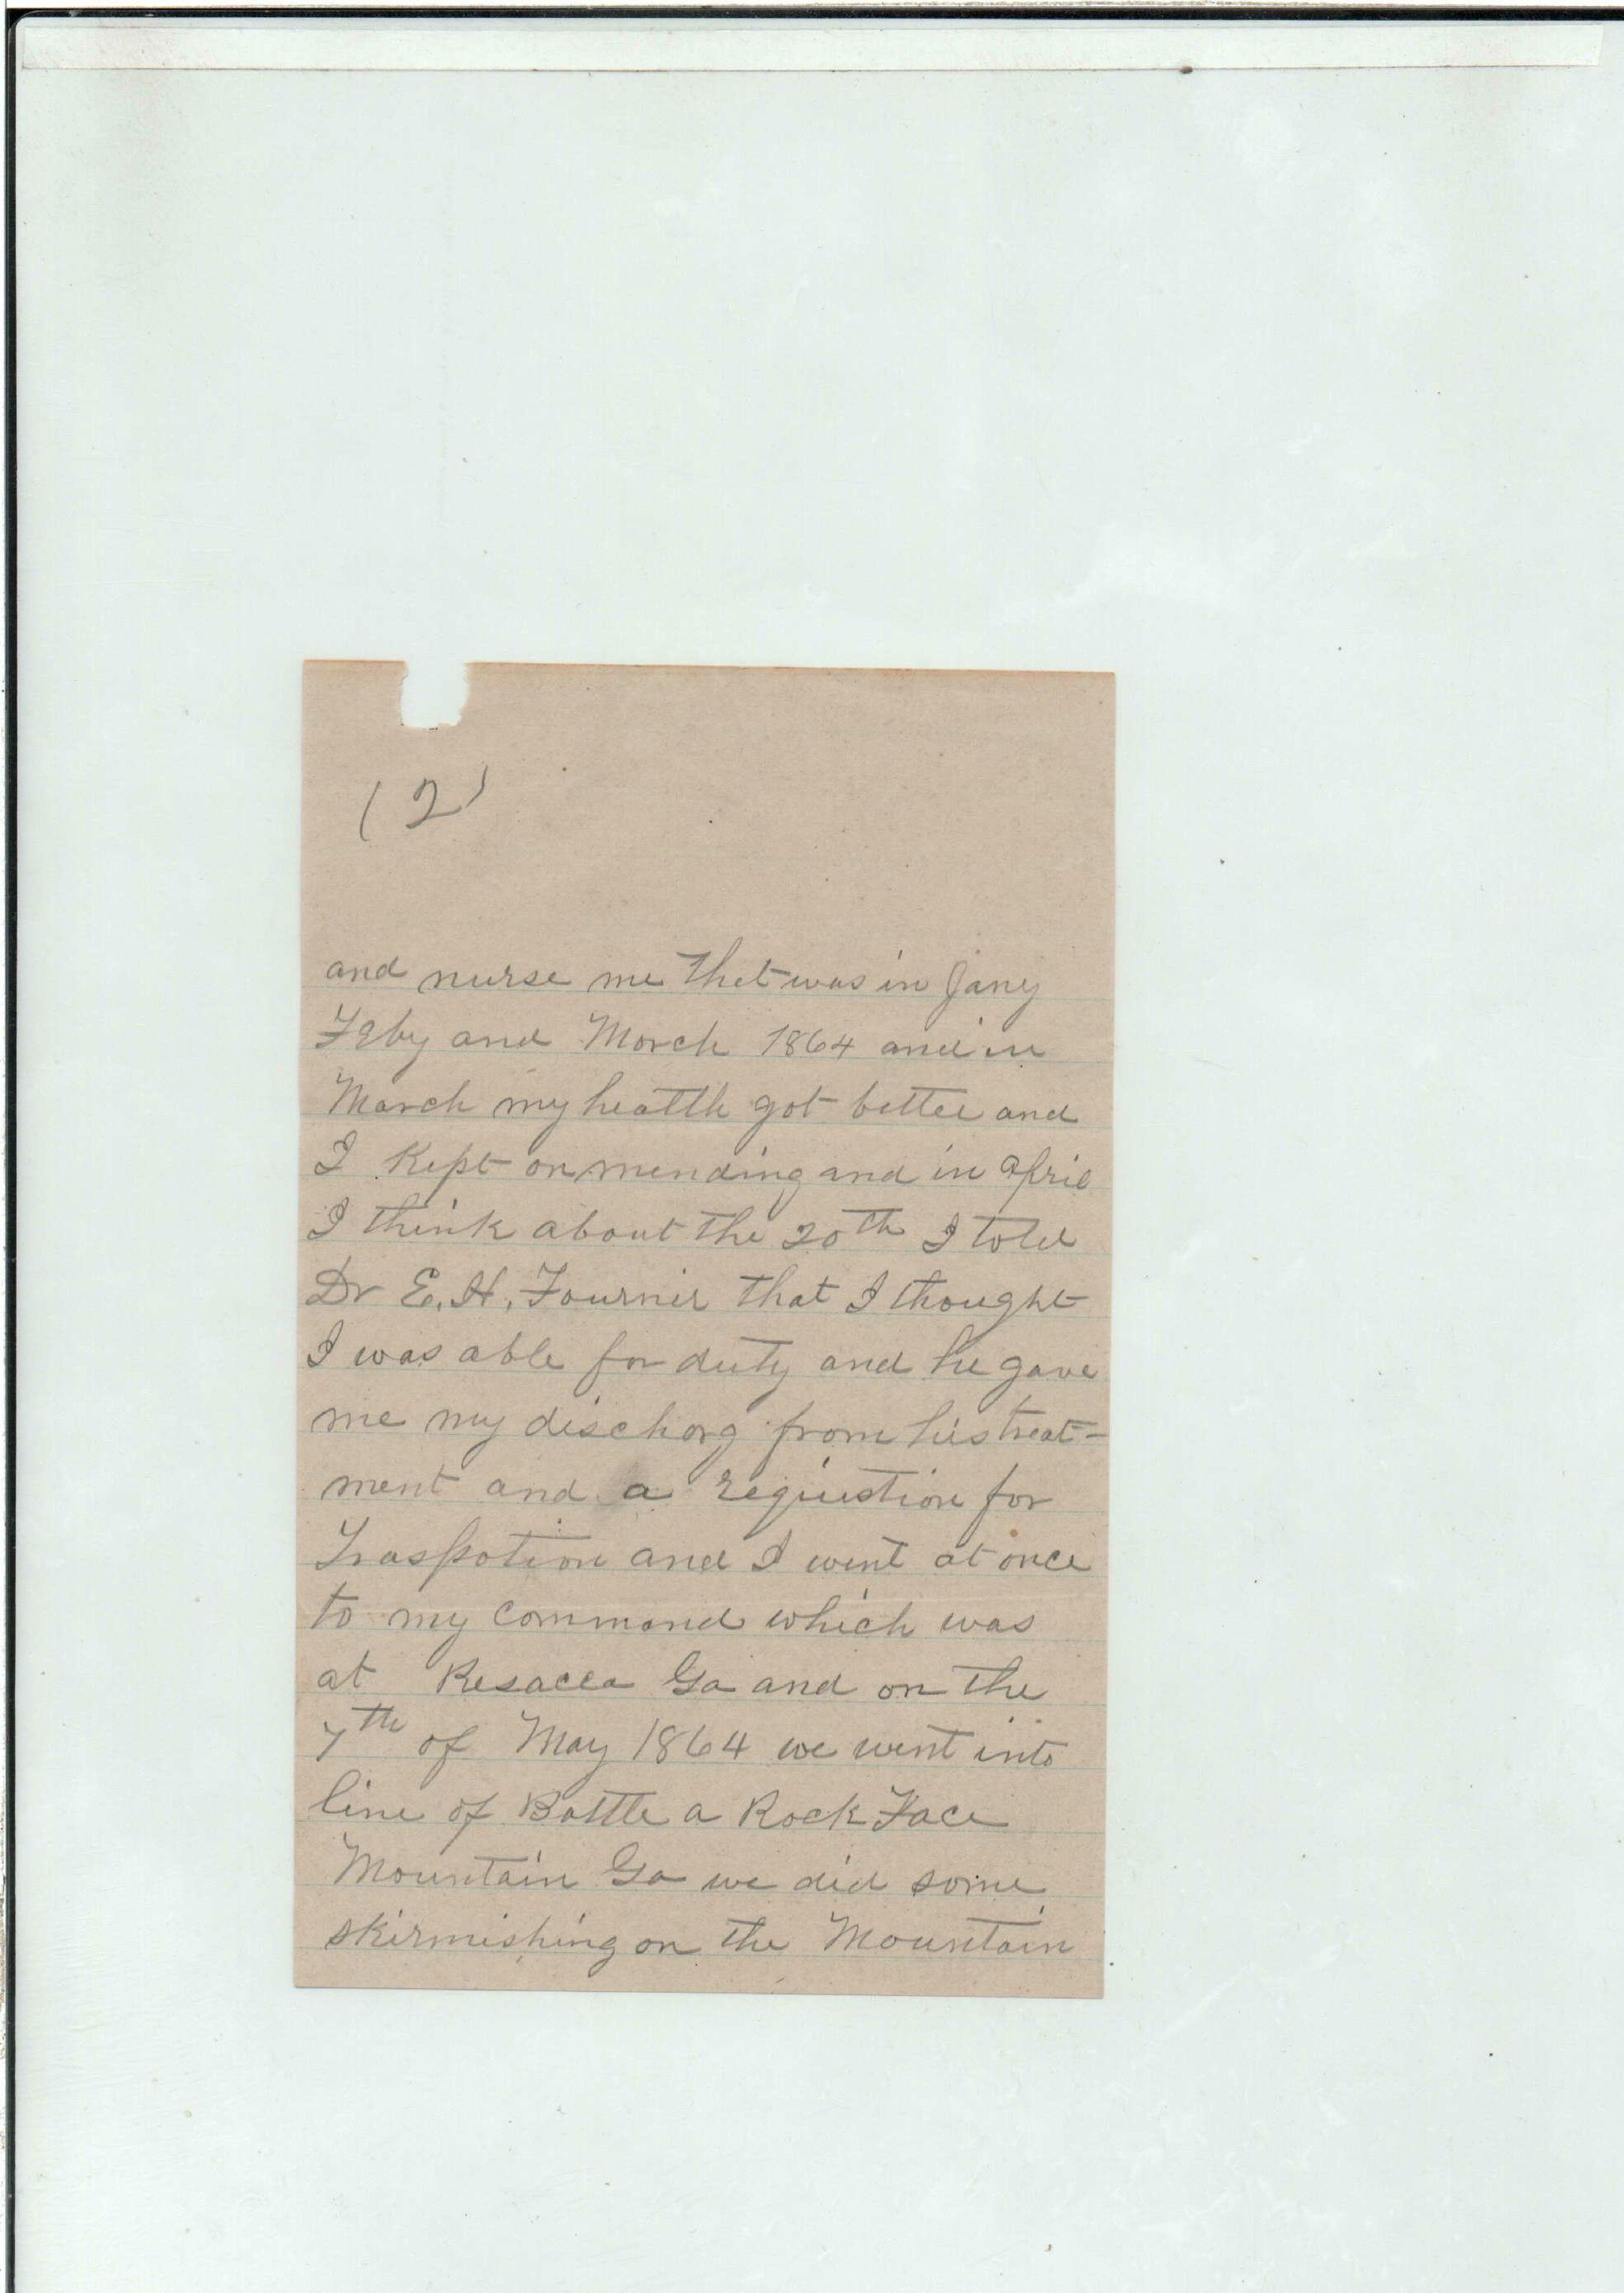 (2)
and nurse me that was in Jany
Feby and March 1864 and in
March my health got better and
I Kept on mending and in april
I think about the 20th I told
Dr E. H. Fournir that I thought
I was able for duty and he gave
me my discharg from his treat-
ment and a requistion for
Traspotion and I went at once
to my command which was
at Resacca Ga and on the
7th of May 1864 we went into
line of Battle a Rock Face
Mountain Ga we did some
skirmishing on the Mountain